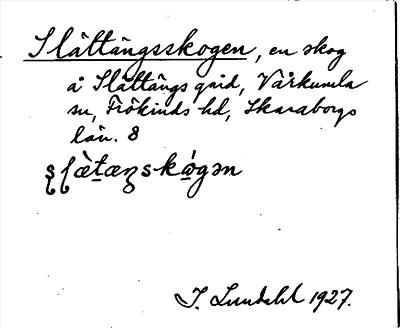 Slättängsskogen, en skog
å Slättängs gård, Vårkumla
sn, Frökinds hd, Skaraborgs
län. 8
I. Lundahl 1927.